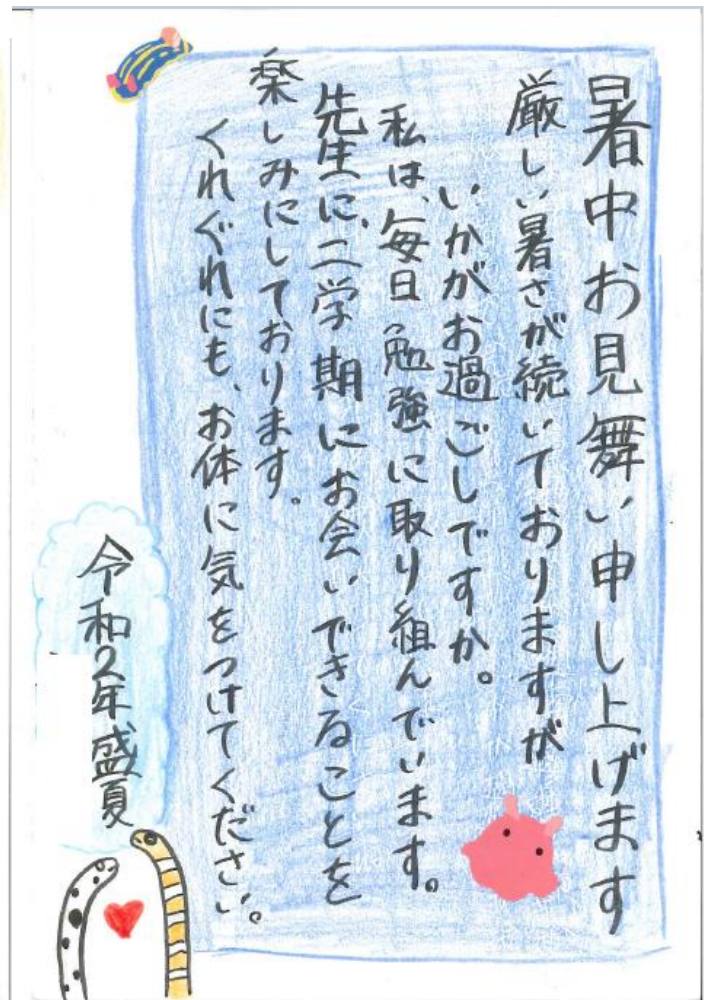 暑中お見舞い申し上げます
厳しい暑さが続いておりますが
いかがお過ごしですか。
私は、毎日勉強に取り組んでいます。
先生に、二学期にお会いできることを
楽しみにしております。
くれぐれにも、お体に気をつけてください。
令和2年盛夏